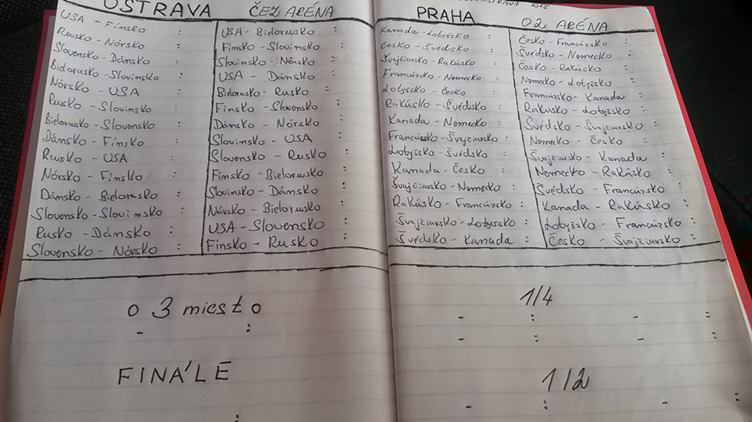 OSTRAVA ČEZ ARÉNA
USA - Fínsko :
Rusko - Nórsko :
Slovensko - Dánsko :
Bidorusko - Slovinsko :
Nórsko - USA :
Rusko - Slovinsko :
Bielorusko - Slovensko :
Dánsko - Fínsko :
Rusko - USA :
Nórsko - Fínsko :
Dánsko - Bielorusko :
Slovensko - Slovinsko :
Rusko - Dánsko :
Slovensko - Nórsko :
USA - Bielorusko :
Fínsko - Slovinsko :
Slovinsko - Nórsko :
USA - Dánsko :
Bidorusko - Rusko :
Fínsko - Slovensko :
Dánsko - Nórsko :
Slovinsko - USA :
Slovensko - Rusko :
Fínsko - Bielorusko :
Slovinsko - Dánsko :
Nórsko - Bielorusko :
USA - Slovensko :
Fínsko - Rusko :
o 3 miesto
- :
FINÁLE
:
PRAHA O2 ARÉNA
Kanada - Lotyšsko :
Česko - Švédsko :
Švajčiarsko - Rakúsko :
Francúzsko - Nemecko :
Lotyšsko - Česko :
Rakúsko - Švédsko :
Kanada - Nemecko :
Francúzsko - Švajčiarsko :
Lotyšsko - Švédsko :
Kanada - Česko :
Švajčiarsko - Nemecko :
Rakúsko - Francúzsko :
Švajčiarsko - Lotyšsko :
Švédsko - Kanada :
Česko - Francúzsko :
Švédsko - Nemecko :
Česko - Rakúsko :
Nemecko - Lotyšsko :
Francúzsko - Kanada :
Rakúsko - Lotyšsko :
Švédsko - Švajčiarsko :
Nemecko - Česko :
Švajčiarsko - Kanada :
Nemecko - Rakúsko :
Švédsko - Francúzsko :
Kanada - Rakúsko :
Lotyšsko - Francúzsko :
Česko - Švajčiarsko :
1/4
- : - :
- : - :
1/2
- : - :